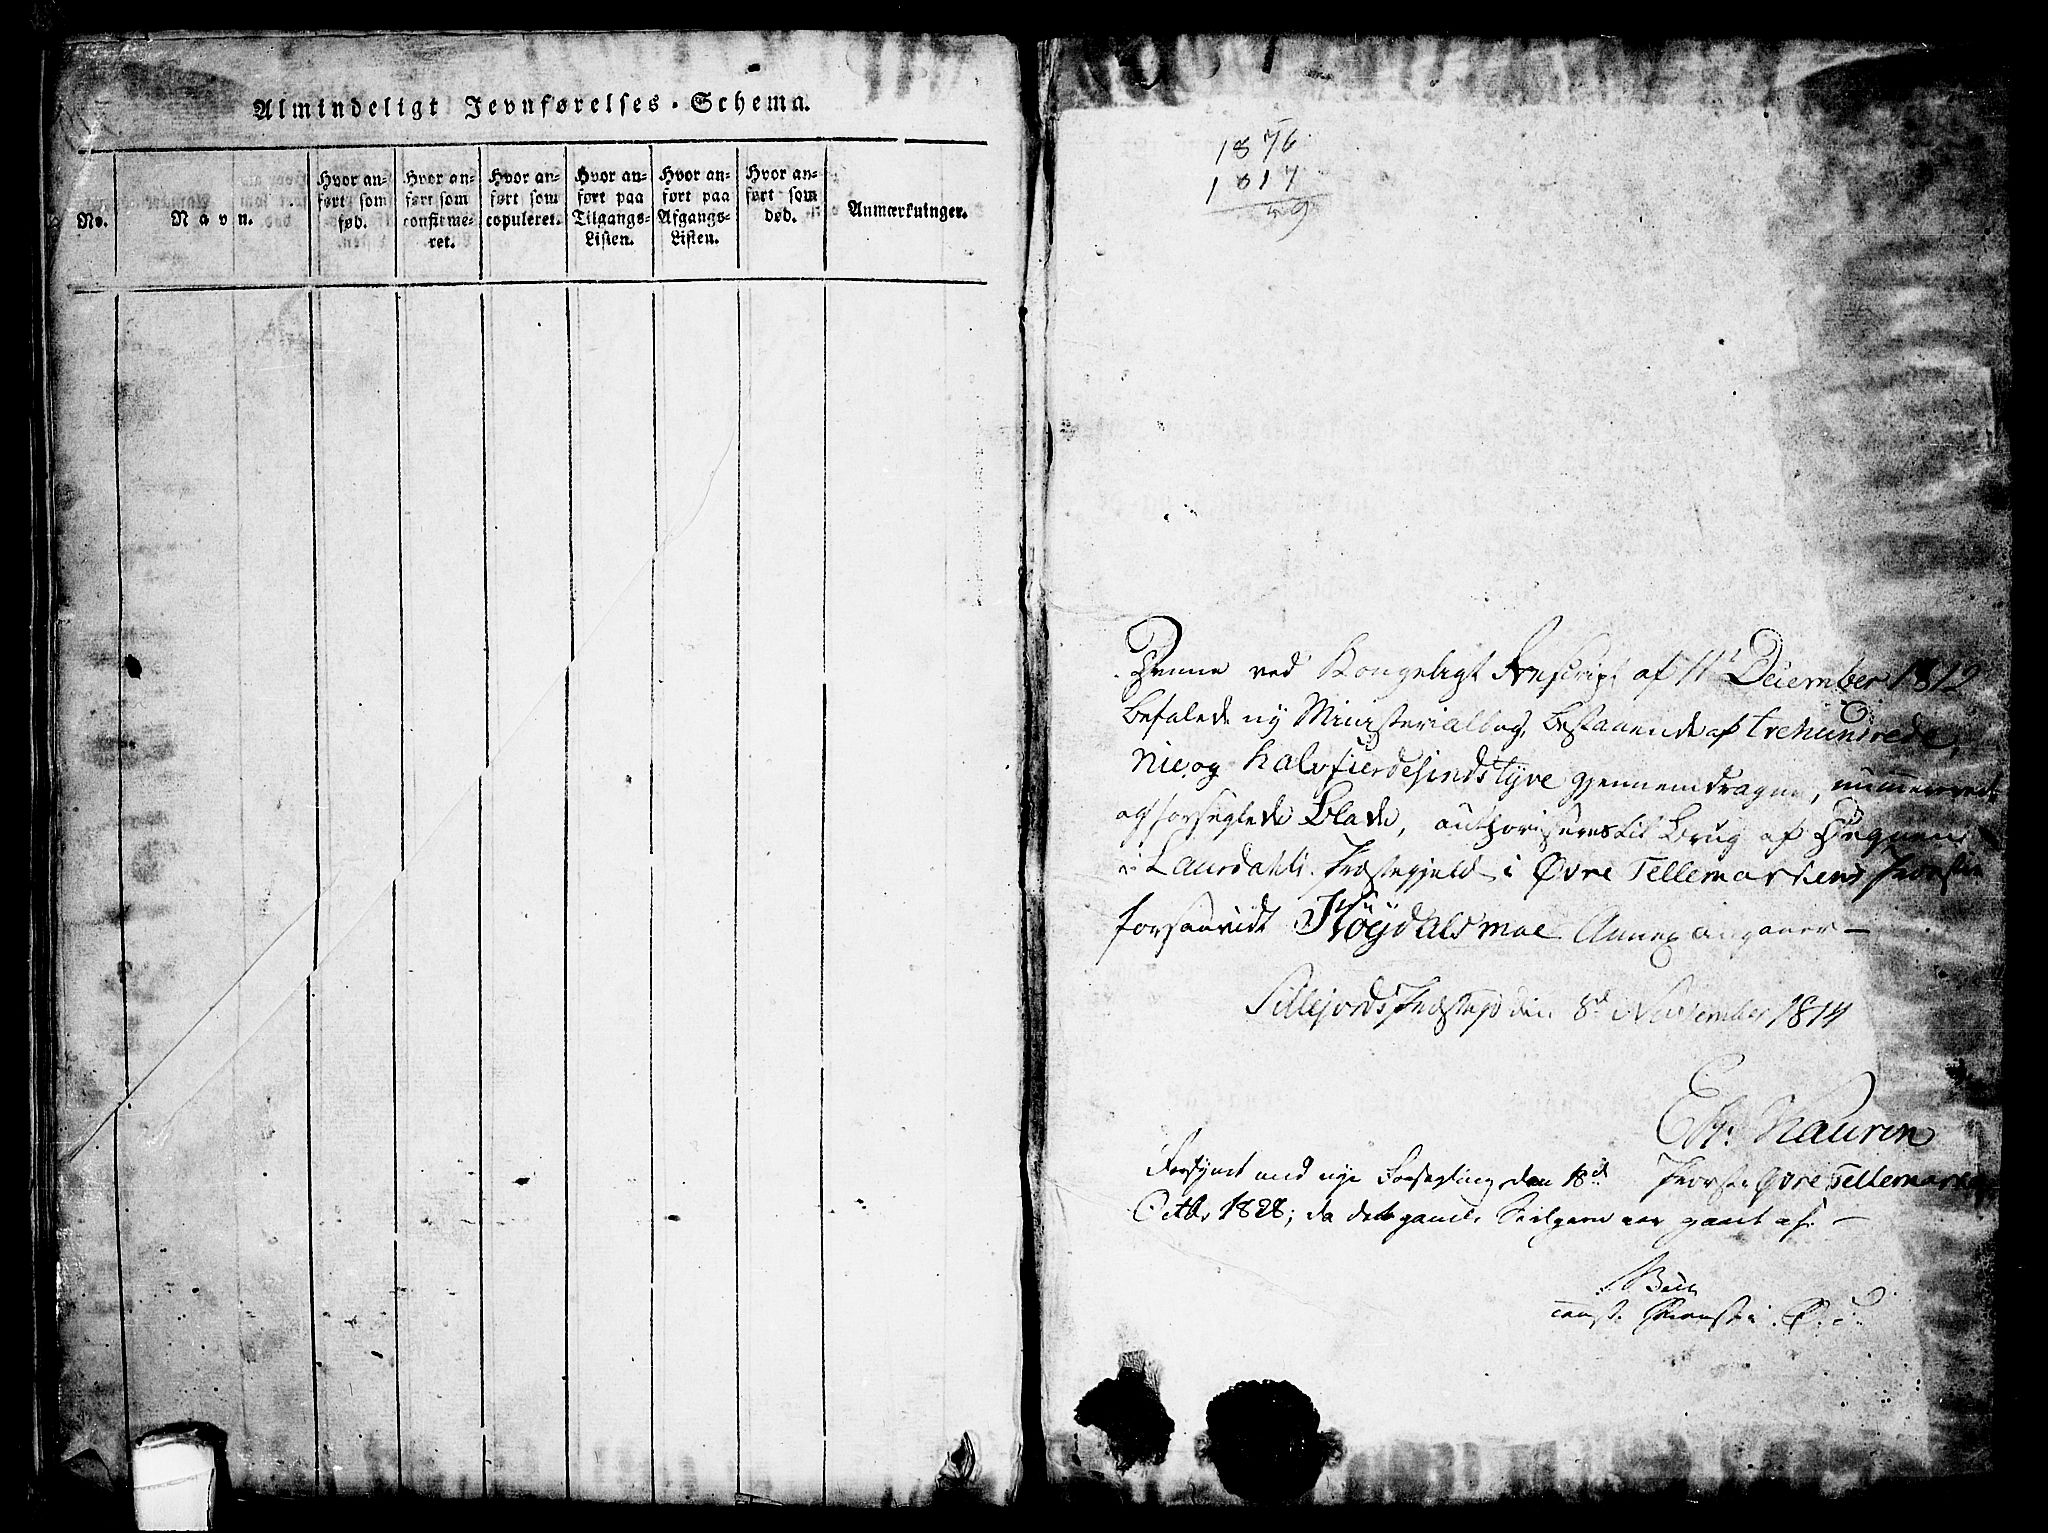 Almindeligt Jevnførelses-Schema.
No.
Navn.
Hvor an-
ført som
fød.
Hvor an-
ført som
confirme-
ret.
Hvor an-
ført som
copuleret.
Hvor an-
ført paa
Tilgangs-
Listen.
Hvor an-
ført paa
Afgangs-
Listen.
Hvor an-
ført som
død.
Anmærkninger.
1876
1817
59
Denne ved Kongeligt Rescript af 11t December 1812
befalede ny Ministerialbog, bestaaende af trehundrede,
nie og halvfierdesindstyve gjennemdragne, nummererede
og forseglede Blade, authoriseres til Brug af Degnen
i Laurdahls Præstegjeld i Øvre Tellemarkens Provstie
forsaavidt Høydalsmoe Annex angaaer –
Sillejords Præstegd den 8d November 1814
Navren
Provst i Øvre Tellemarken
Forsynet med nye Forsegling den 18d
Octbr 1828; da det gamle Seilgarn var gaaet af. –
Const. Provst i Ø.